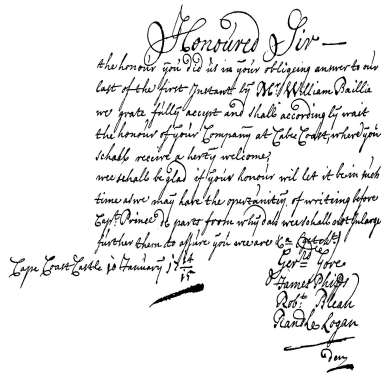 Honoured Sir —
the honour you did us in your obligeing answer to our
last of the first Instant by Mr. William Baillie
we grate fully accept and shall accordingly wait
the honour of your Company at Cabe Coast, where you
schall receive a herty welcome,
wee schall be glad if your honour will let it be in such
time as we may have the opurtunity, of writing before
Capt. Prince de parts from whydah wee schall not Inlarge
further then to assure you we are
Cape Coast Castle 10 January 17 14/15
Ger Gore
James Phipps
Robt. Bleau
Randle Logan